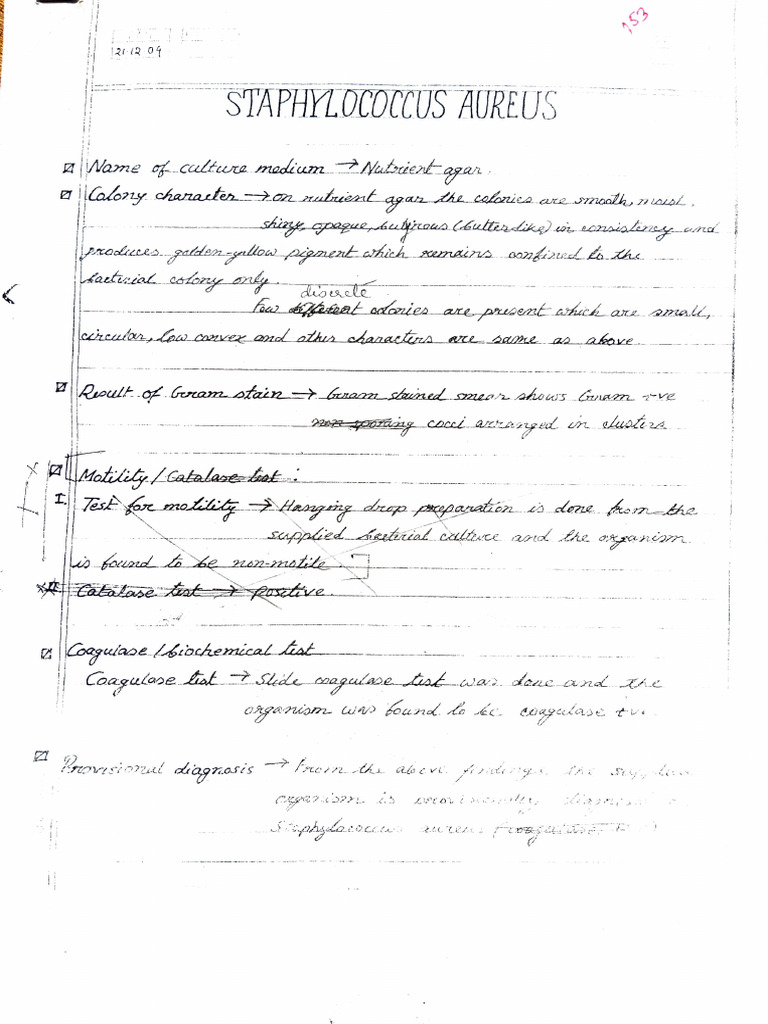 153
21.12.09
STAPHYLOCOCCUS AUREUS
Name of culture medium → Nutrient agar.
Colony character → on nutrient agar the colonies are smooth, moist,
shiny, opaque, butyrous (butter like) in consistency and
produces golden-yellow pigment which remains confined to the
bacterial colony only.
discrete
Few different colonies are present which are small,
circular, low convex and other characters are same as above
Result of Gram stain → Gram stained smear shows Gram +ve
non-sporing cocci arranged in clusters
Motility / Catalase test :
I. Test for motility → Hanging drop preparation is done from the
supplied bacterial culture and the organism
is found to be non-motile.
II. Catalase test → positive.
Coagulase / biochemical test
Coagulase test → Slide coagulase test was done and the
organism was found to be coagulase +ve
Provisional diagnosis → From the above findings the
organism is provisionally
Staphylococcus aureus (coagulase